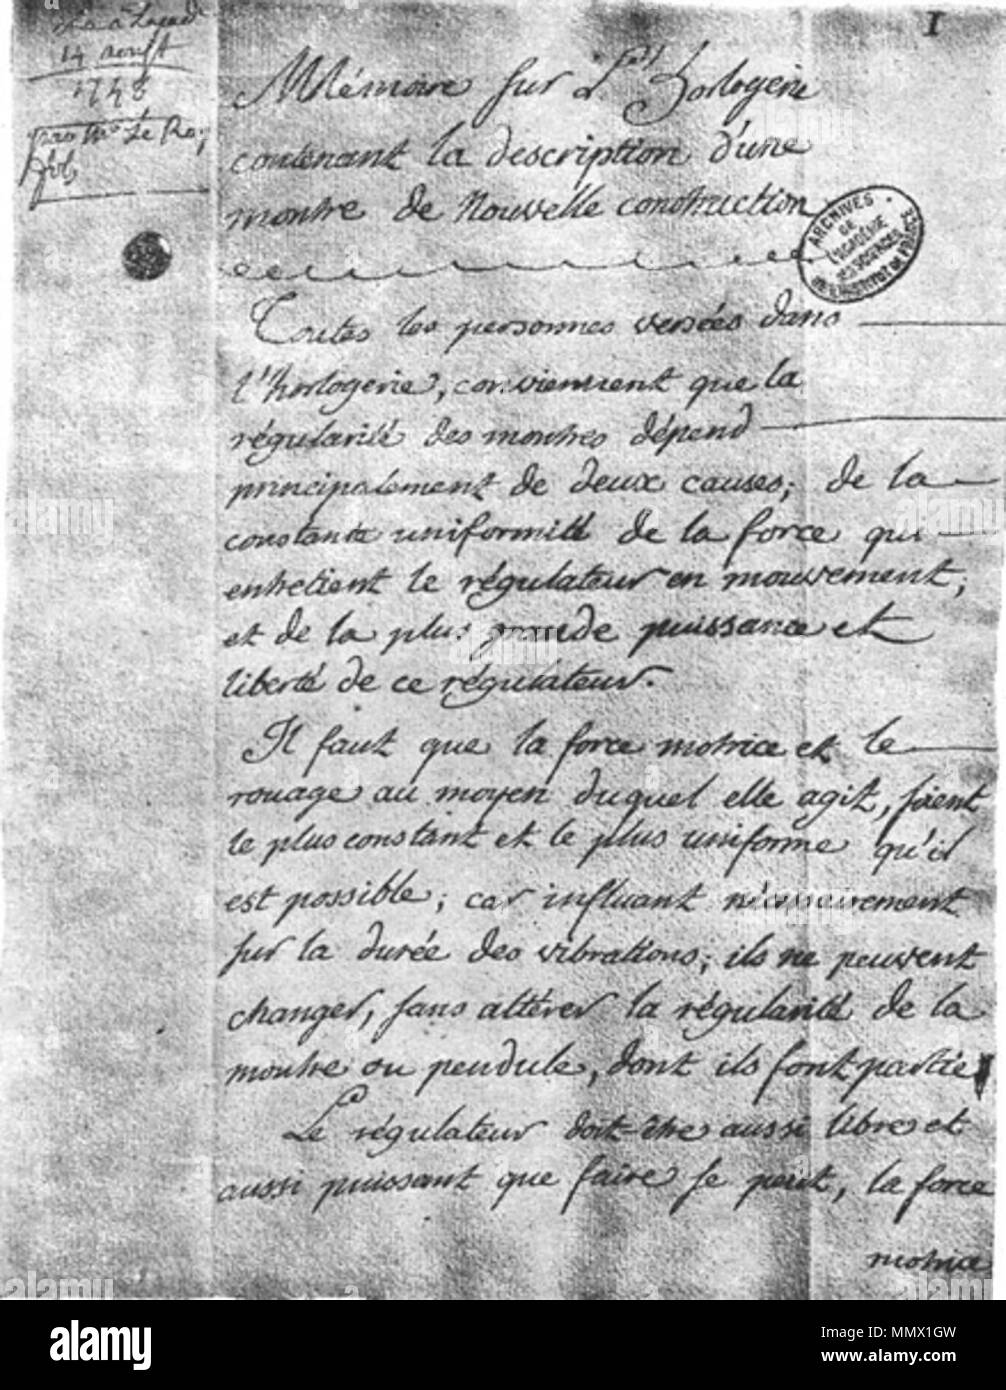 1
Lu à l'acad.
14 aoust
1748
par Mr. Le Roy
fils
Mémoire sur L'horlogerie
contenant la description d'une
montre de Nouvelle construction
ARCHIVES DE L'ACADÉMIE DES SCIENCES DE L'INSTITUT DE FRANCE
Toutes les personnes versées dans
l'horlogerie, conviennent que la
régularité des montres dépend
principalement de deux causes; de la
constante uniformité de la force qui
entretient le régulateur en mouvement;
et de la plus grande puissance et
liberté de ce régulateur.
Il faut que la force motrice et le
rouage au moyen duquel elle agit, soient
le plus constant et le plus uniforme qu'il
est possible; car influant nécessairement
sur la durée des vibrations; ils ne peuvent
changer, sans altérer la régularité de la
montre ou pendule, dont ils font partie
Le régulateur doit être aussi libre et
aussi puissant que faire se peut, la force
motrice
alamy
alamy
Image ID: MMX1GW
www.alamy.com